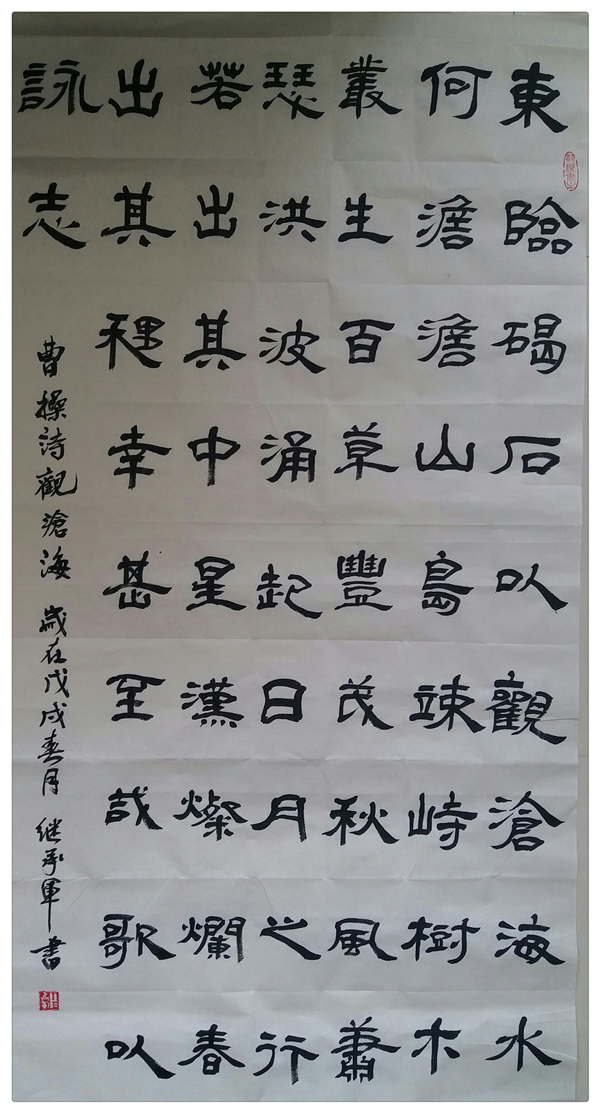 東臨碣石以觀滄海水
何澹澹山島竦峙樹木
叢生百草豐茂秋風蕭
瑟洪波涌起日月之行
若出其中星漢燦爛春
出其裡幸甚至哉歌以
詠志
曹操詩觀滄海 歲在戊戌春月 继承軍書